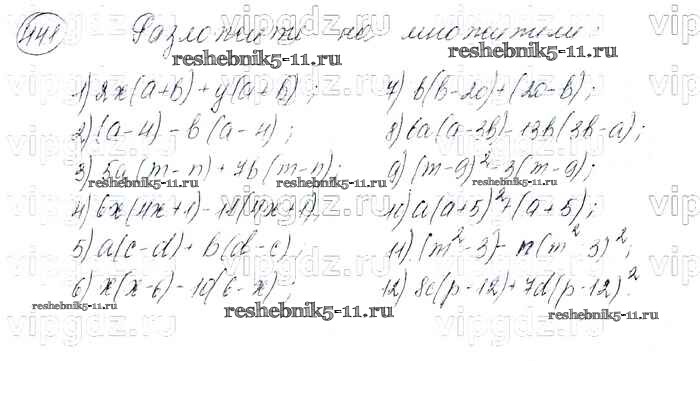 441 Разложите на множители:
1) 2x(a+b)+y(a+b);
2) (a-4)-b(a-4);
3) 5a(m-n)+7b(m-n);
4) 6x(4x+1)-11(4x+1);
5) a(c-d)+b(d-c);
6) x(x-6)-10(6-x);
7) b(b-20)+(20-b);
8) 6a(a-3b)-13b(3b-a);
9) (m-9)²-3(m-9);
10) a(a+5)²+(a+5);
11) (m²-3)-n(m²-3)²;
12) 8c(p-12)+7d(p-12)²
reshebnik5-11.ru
reshebnik5-11.ru
reshebnik5-11.ru
reshebnik5-11.ru
reshebnik5-11.ru
reshebnik5-11.ru
reshebnik5-11.ru
reshebnik5-11.ru
vipgdz.ru